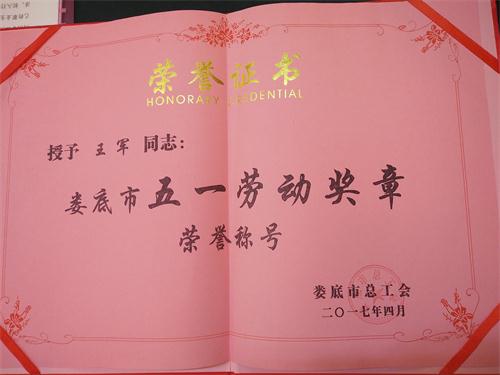 荣誉证书
授予 王军 同志：
娄底市五一劳动奖章
荣誉称号
娄底市总工会
二〇一七年四月